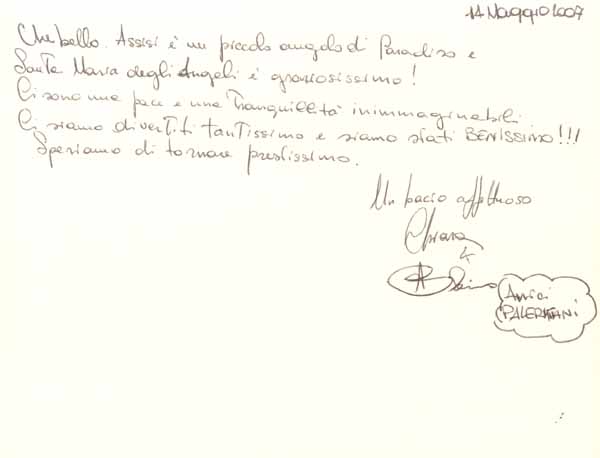 14 Maggio 2007
Che bello. Assisi è un piccolo angolo di Paradiso e
Santa Maria degli Angeli è graziosissimo!
Ci sono una pace e una Tranquillità inimmaginabili.
Ci siamo divertiti tantissimo e siamo stati BENISSIMO!!!
Speriamo di tornare prestissimo.
Un bacio affettuoso
Chiara
Amici
PALERMITANI